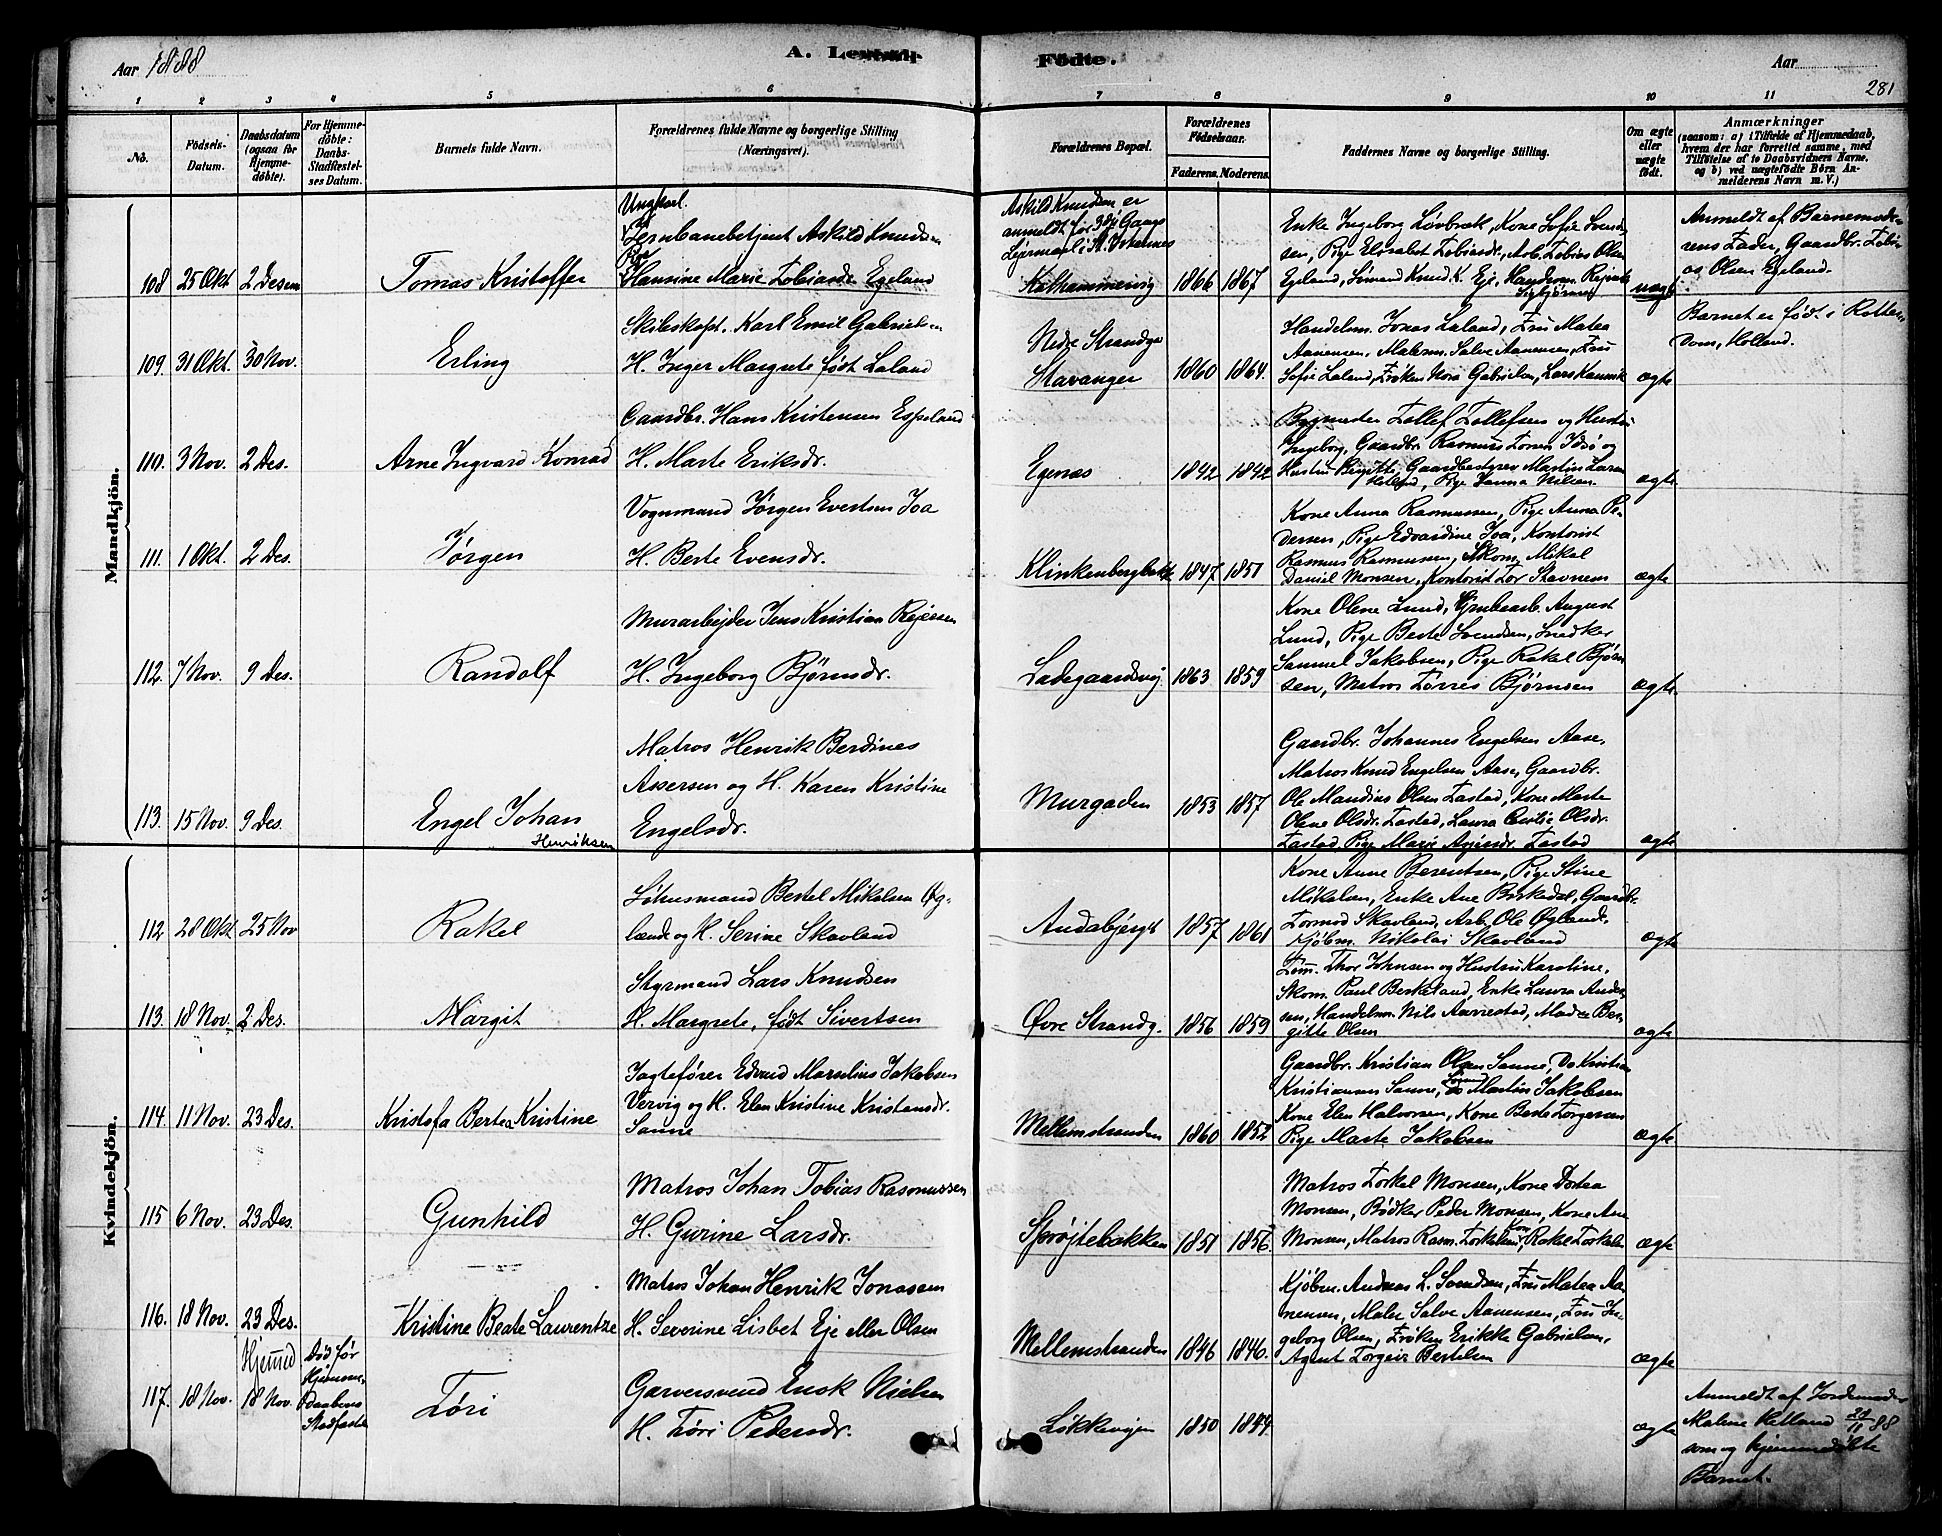 Aar 1888
A. Levende Fødte.
Aar
281
1 2 3 4 5 6 7 8 9 10 11
No.
Fødsels-
Datum.
Daabsdatum
(ogsaa for
Hjemme-
døbte).
For Hjemme-
døbte:
Daabs-
Stadfæstel-
ses Datum.
Barnets fulde Navn.
Forældrenes fulde Navne og borgerlige Stilling
(Næringsvei).
Forældrenes Bopæl.
Forældrenes
Fødselsaar.
Faderens. Moderens.
Faddernes Navne og borgerlige Stilling.
Om ægte
eller
uægte
født.
Anmærkninger
(saasom: a) i Tilfælde af Hjemmedaab,
hvem der har forrettet samme, med
Tilføielse af to Daabsvidners Navne,
og b) ved uægtefødte Børn An-
melderens Navn m. V.)
Mandkjön.
108 25 Okt 2 Desem
Tomas Kristoffer
Ungkarl.
Jernbanebetjent Askild Knudsen
Pige
Hansine Marie Tobiasdr Egeland
Askild Knudsen er
anmeldt for 3die Gangs
Lejermaal i St. Johannes
1866 1867
Enke Ingeborg Løvbrak, Kone Sofie Svend
sen, Pige Elisabet Tobiasdr, Arb. Tobias Olsen
Egeland, Sømand Knud K. Eje, Haandv.
uægte
Anmeldt af Barnemode-
rens Fader, Gaardbr. Tobi-
as Olsen Egeland.
109. 31 Okt. 30 Nov.
Erling
Skibskapt. Karl Emil Gabrielsen
H. Inger Margrete født Laland
Nedre Strandga
Stavanger
1860 1864.
Handelsm. Jonas Laland, Fru Matea
Aanensen, Malerm. Salve Aanensen, Fru
Sofie Laland, Frøken Nora Gabrielsen, Lars
ægte
Barnet er født i Rotter-
dam, Holland.
110. 3 Nov. 2 Des.
Arne Ingvard Konrad
Gaardbr. Hans Kristensen Espeland
H. Marte Eriksdr.
Egenæs
1842 1842
Bygmester Tollef Tollefsen og Hustru
Ingeborg, Gaardbr. Rasmus Idsø og
Hustru Birgitte, Gaardbestyrer Martin Larsen
Hetland, Pige Hanna Nilsen.
ægte
111. 1 Okt. 2 Des.
Jørgen
Vognmand Jørgen Evertsen Joa
H. Berte Evensdr.
Klinkenbergbakk
1847 1851
Kone Anna Rasmussen, Pige Anna Pe-
dersen, Pige Edvardine Joa, Kontorist
Rasmus Rasmussen, Skom. Mikal
Daniel Monsen, Kontorist Tor Stavnem
ægte
112. 7 Nov. 9 Des.
Randolf
Murarbejder Jens Kristian Rejersen
H. Ingeborg Bjørnsdr.
Ladegaardsvej.
1863 1859
Kone Olene Lund, August
Lund, Pige Berte Svendsen, Snedker
Samuel Jakobsen, Pige Rakel Bjørn
sen, Matros Torres Bjørnsen
ægte.
113. 15 Nov. 9 Des.
Engel Johan
Henriksen
Matros Henrik Berdines
Assersen og H. Karen Kristine
Engelsdr.
Murgaden
1853 1857
Gaardbr. Johannes Engelsen Aase,
Matros Knud Engelsen Aase, Gaardbr.
Ole Mandius Olsen Tastad, Kone Marte
Olene Olsdr. Tastad, Laura Olsdr.
Tastad, Pige Marie Tastad
ægte
Kvindekjön.
112 28 Okt 25 Nov
Rakel
Bertel Mikalsen Øg-
lænd og H. Serine Skavland
Andabjerget
1857 1861
Kone Anne Berentsen, Pige Stine
Mikalsen, Enke Ane Birkedal, Gaardbr.
Tormod Skavland, Arb. Ole Øgland.
Kjøbm. Nikolai Skavland
ægte
113. 18 Nov. 2 Des.
Margit
Styrmand Lars Knudsen
H. Margrete, født Sivertsen
Øvre Strandg.
1856 1859
Tøm. Thor Johnsen og Hustru Karoline,
Skom. Paul Berkeland, Enke Laura Ander
sen, Handelsm. Nils Aarrestad, Madam Ber-
gitte Olsen
ægte
114. 11 Nov. 23 Des.
Kristofa Bertea Kristine
Jagtefører Edvard Marselius Jakobsen
Vervig og H. Elen Kristine Kristensdr.
Sanne
Mellemstranden
1860 1852
Gaardbr. Kristian Olsen Sanne, Do Kristian
Kristiansen Sanne, Martin Jakobsen
Kone Elen Halvorsen, Kone Berte Torgersen
Pige Marte Jakobsen
ægte
115 6 Nov. 23 Des.
Gunhild
Matros Johan Tobias Rasmussen
H. Gurine Larsdr.
Sprøjtebakken
1851 1856
Matros Torkel Monsen, Kone Dortea
Monsen, Bødker Peder Monsen, Kone Ane
Monsen, Matros Rasm. Torkelsen, Kone Rakel Torkelsen
ægte
116. 18 Nov. 23 Des.
Kristine Beate Laurentze
Matros Johan Henrik Jonassen
H. Severine Lisbet Eje eller Olsen
Mellemstranden
1846 1846.
Kjøbm. Andreas L. Svendsen, Fru Matea Aa-
nensen, Maler Salve Aanensen, Fru In-
geborg Olsen, Frøken Erikke Gabrielsen,
Agent Torgeir Bertelsen
ægte
117. 18 Nov.
Hjemmed
18 Nov.
Død før
Hjemme-
Daabens
Stadfæste
Tøri
Garversvend Enok Nielsen
H. Tøri Pedersdr.
Løkkevejen
1850 1844
ægte
Anmeldt af Jordemoder
Malene Hetland 20/11 88
som og hjemmedøbte
Barnet.